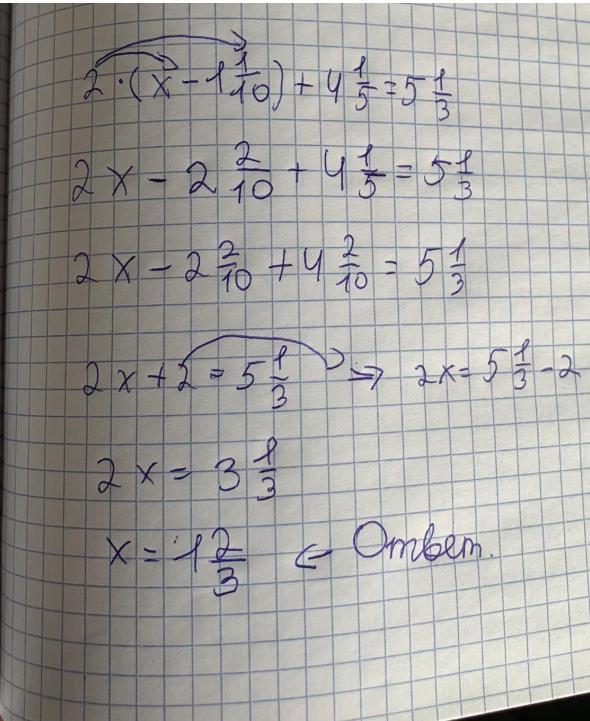 2·(x - 1 1/10) + 4 1/5 = 5 1/3
2x - 2 2/10 + 4 1/5 = 5 1/3
2x - 2 2/10 + 4 2/10 = 5 1/3
2x + 2 = 5 1/3 → 2x = 5 1/3 - 2
2x = 3 1/3
x = 1 2/3 ← Ответ.